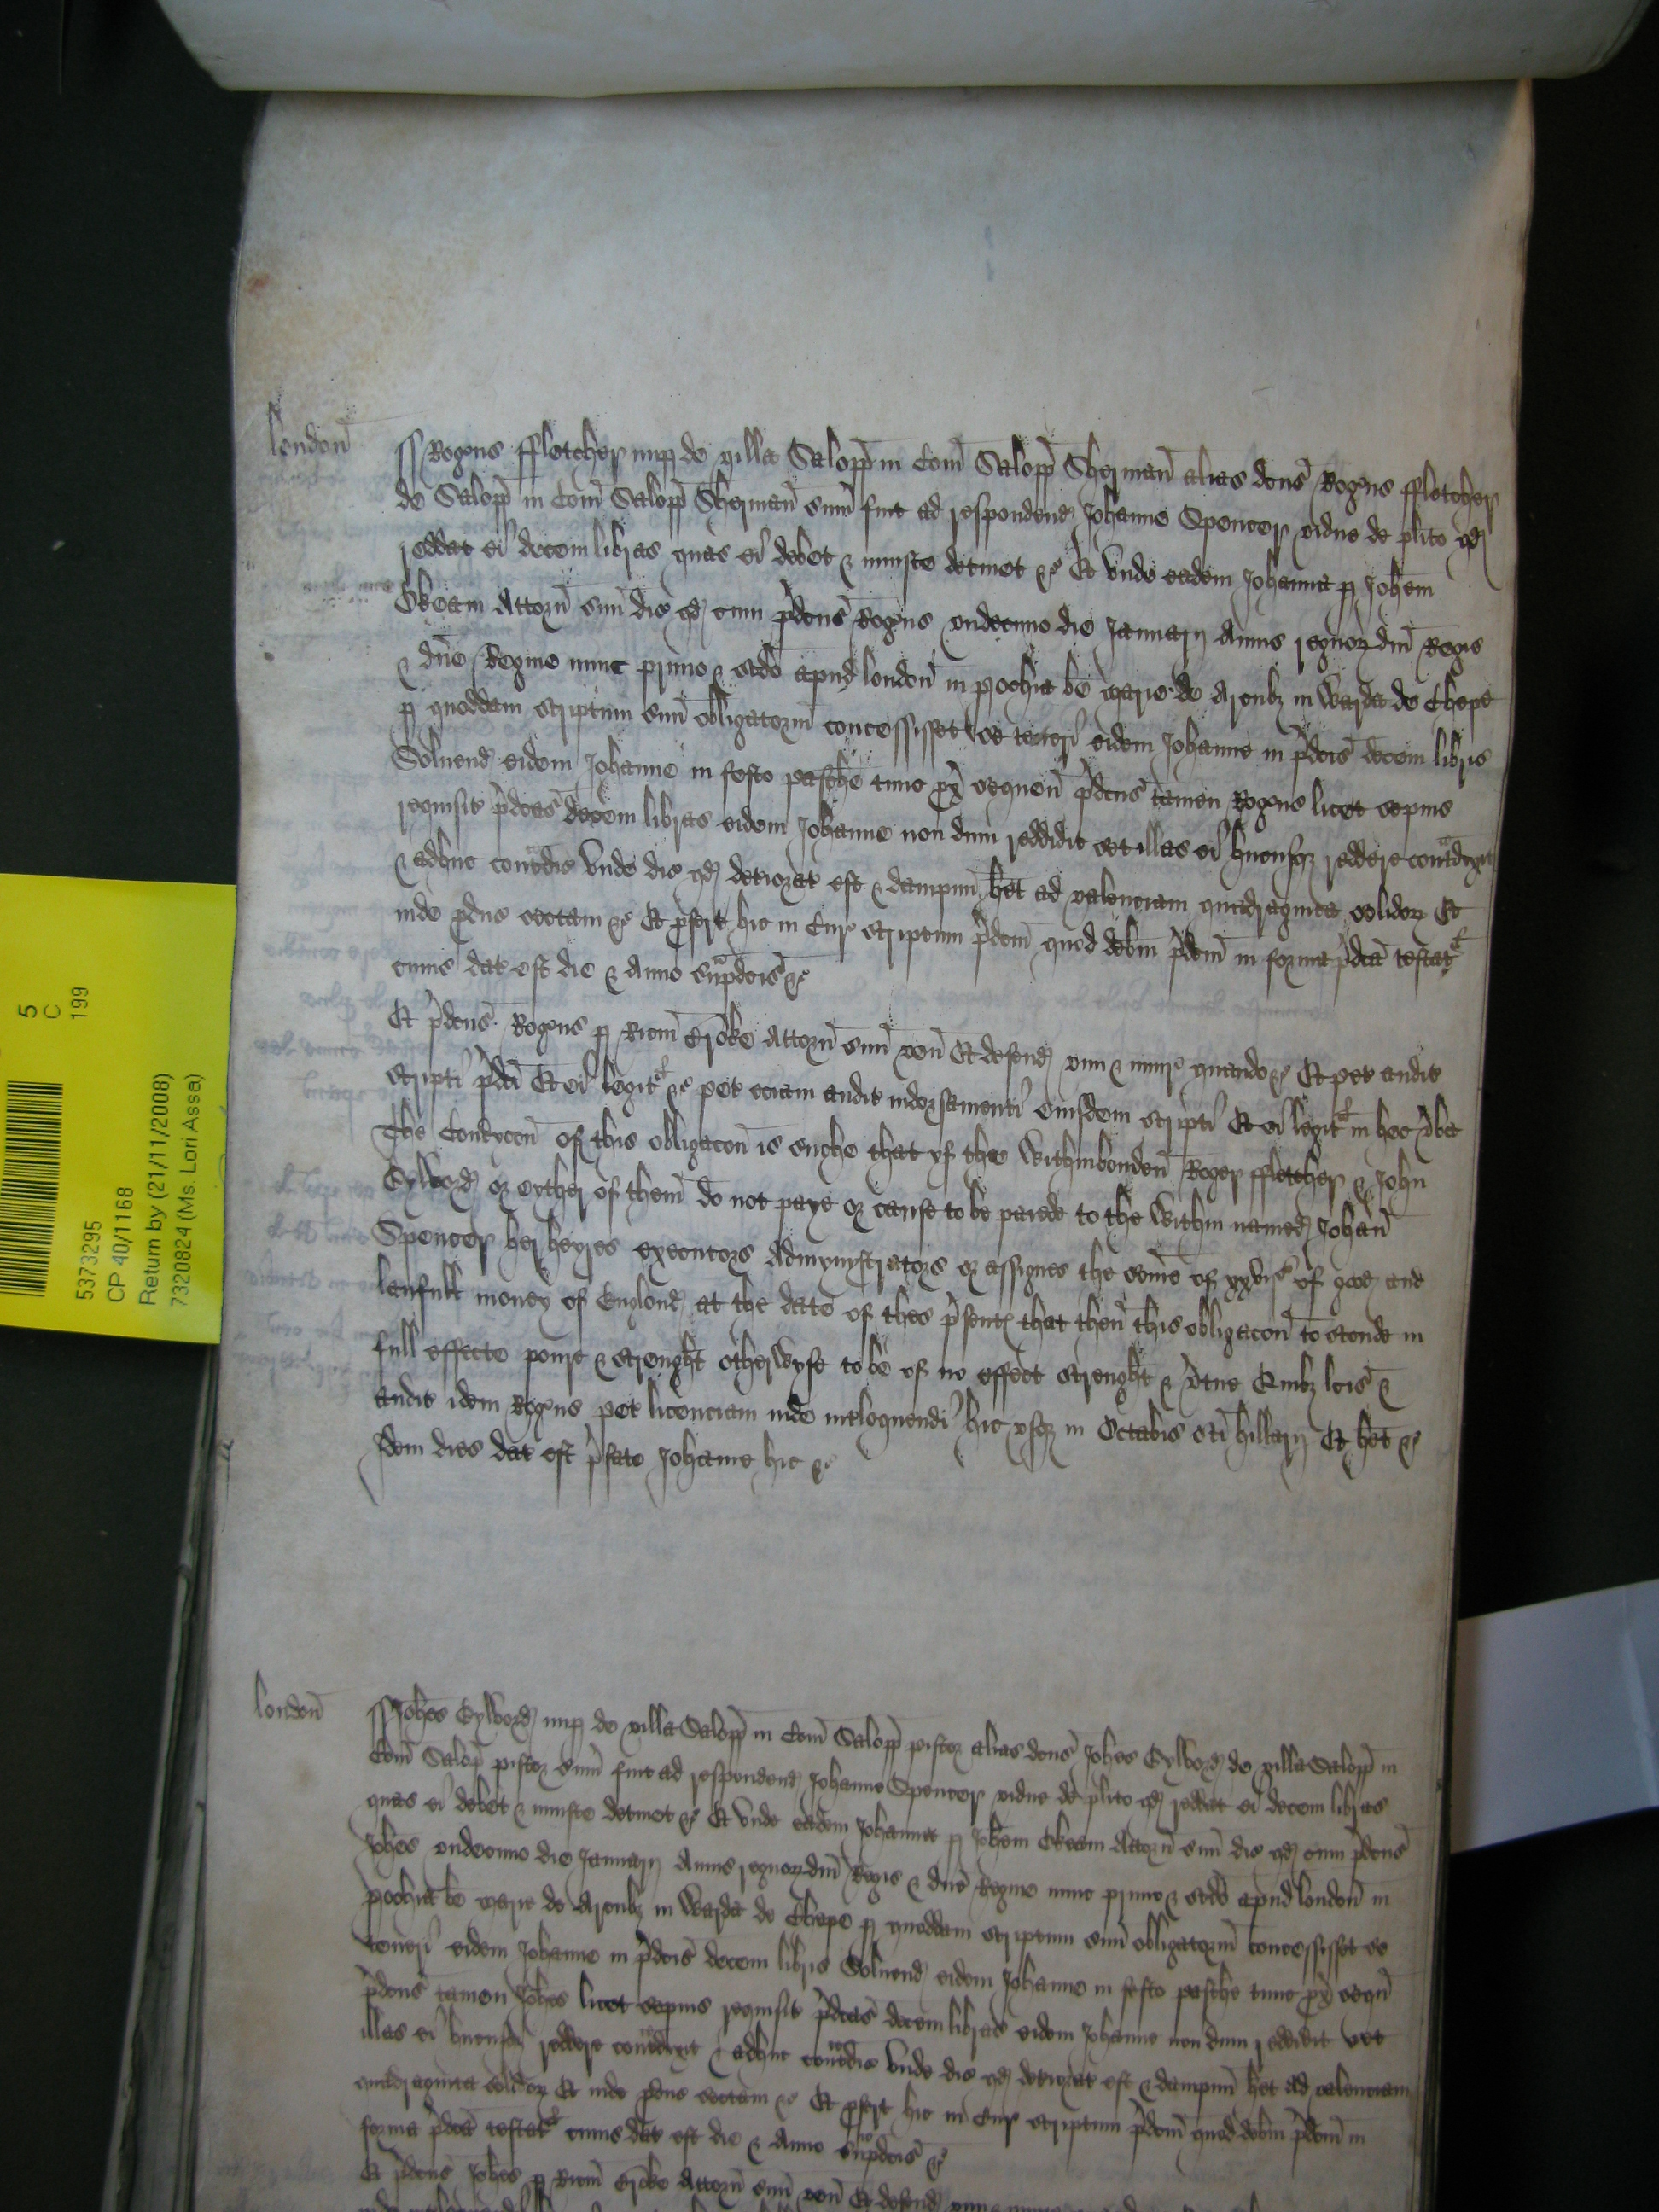 london̄
ss Rog̃us ffletcher nup de villa Salopp̄ in Com̄ Salopp̄ Sherman̄ alias dc̄us Rog̃us ffletcher
de Salopp̄ in Com̄ Salopp̄ Sherman̄ sum̄ fuit ad respondend Johanne Spencer vidue de pl̄ito qd
reddat ei decem libras quas ei debet & iniuste detinet &c Et unde eadem Johanna p Joh̄em
Okeam Attorn̄ suū dic qd cum p̄dc̄us Rog̃us undecimo die Januarij Annis regnoꝝ dn̄i Regis
& dn̄e Regine nunc primo & sc̄do apud london̄ in pochia bē Marie de Arcubꝫ in Warda de Chepe
p quoddam scriptum suū obligatoriū concessisset se teneri eidem Johanne in p̄dc̄is decem libris
Soluend eidem Johanne in festo pasche tunc px̄ sequen̄ p̄dc̄us tamen Rog̃us licet sepius
requisit p̄dc̄as decem libras eidem Johanne non dum reddidit set illas ei hucusqꝫ reddere contᵃdixit
& adhuc contᵃdic Unde dic qd deteriorat est & dampnū het ad valenciam quadraginta solidoꝝ Et
inde pduc sectam &c Et pfert hic in Cur scriptum p̄dc̄m quod debm̄ p̄dc̄m in forma p̄dc̄a testatʳ
cuius dat est die & Anno sup̃dc̄is &c
Et p̄dc̄us Rog̃us p Ric̄m Croke Attorn̄ suū ven̄ Et defend vim & iniur quando &c Et pet auditˀ
scripti p̄dc̄i Et ei legitʳ &c pet eciam auditˀ indorsamenti eiusdem scripti Et ei legitʳ in hec v̄ba
The Condycon̄ of this obligacon̄ is suche that yf the Withinbonden̄ Roger ffletcher & John
Eylword or eyther of them̄ do not paye or cause to be paiede to the Within named Johan̄
Spencer her heyres executors Admynystrators or assignes the some of xxvjs of good and
laufull money of Englond at the date of thes p̄sentꝭ that then̄ this obligacon̄ to stonde in
full effecte power & strenght otherwyse to be of no effect strenght & v̄tue Quibꝫ lc̄is &
auditˀ idem Rog̃us pet licenciam inde int̃loquendi hic usqꝫ in Octabis sc̄i hillarij Et het &c
Idem dies dat est p̄fate Johanne hic &c
london̄
ss Joh̄es Eylword nup de villa Salopp̄ in Com̄ Salopp̄ pistor alias dc̄us Joh̄es Eylword de villa Salopp̄ in
Com̄ Salop̄ pistor sum̄ fuit ad respondend Johanne Spencer vidue de pl̄ito qd reddat ei decem libras
quas ei debet & iniuste detinet &c Et unde eadem Johanna p Joh̄em Okeam Attorn̄ suū dic qd cum p̄dc̄us
Joh̄es undecimo die Januarij Annis regnoꝝ dn̄i Regis & dn̄e Regine nunc primo & sc̄do apud london̄ in
pochia bē Marie de Arcubꝫ in Warda de Chepe p quoddam scriptum suū obligatoriū concessisset se
teneri eidem Johanne in p̄dc̄is decem libris Soluend eidem Johanne in festo pasche tunc px̄ sequen̄
p̄dc̄us tamen Joh̄es licet sepius requisit p̄dc̄as decem libras eidem Johanne non dum reddidit set
illas ei hucusqꝫ reddere contᵃdixit & adhuc contᵃdic Unde dic qd deteriorat est & dampnū het ad valenciam
quadraginta solidoꝝ Et inde pduc sectam &c Et pfert hic in Cur scriptum p̄dc̄m quod debm̄ p̄dc̄m in
forma p̄dc̄a testatʳ cuius dat est die & Anno sup̃dc̄is &c
Et p̄dc̄us Joh̄es p Ric̄m Croke Attorn̄ suū ven̄ Et defend vim & iniur
5
C
199
5373295
CP 40/1168
Return by (21/11/2008)
7320824 (Ms. Lori Assa)